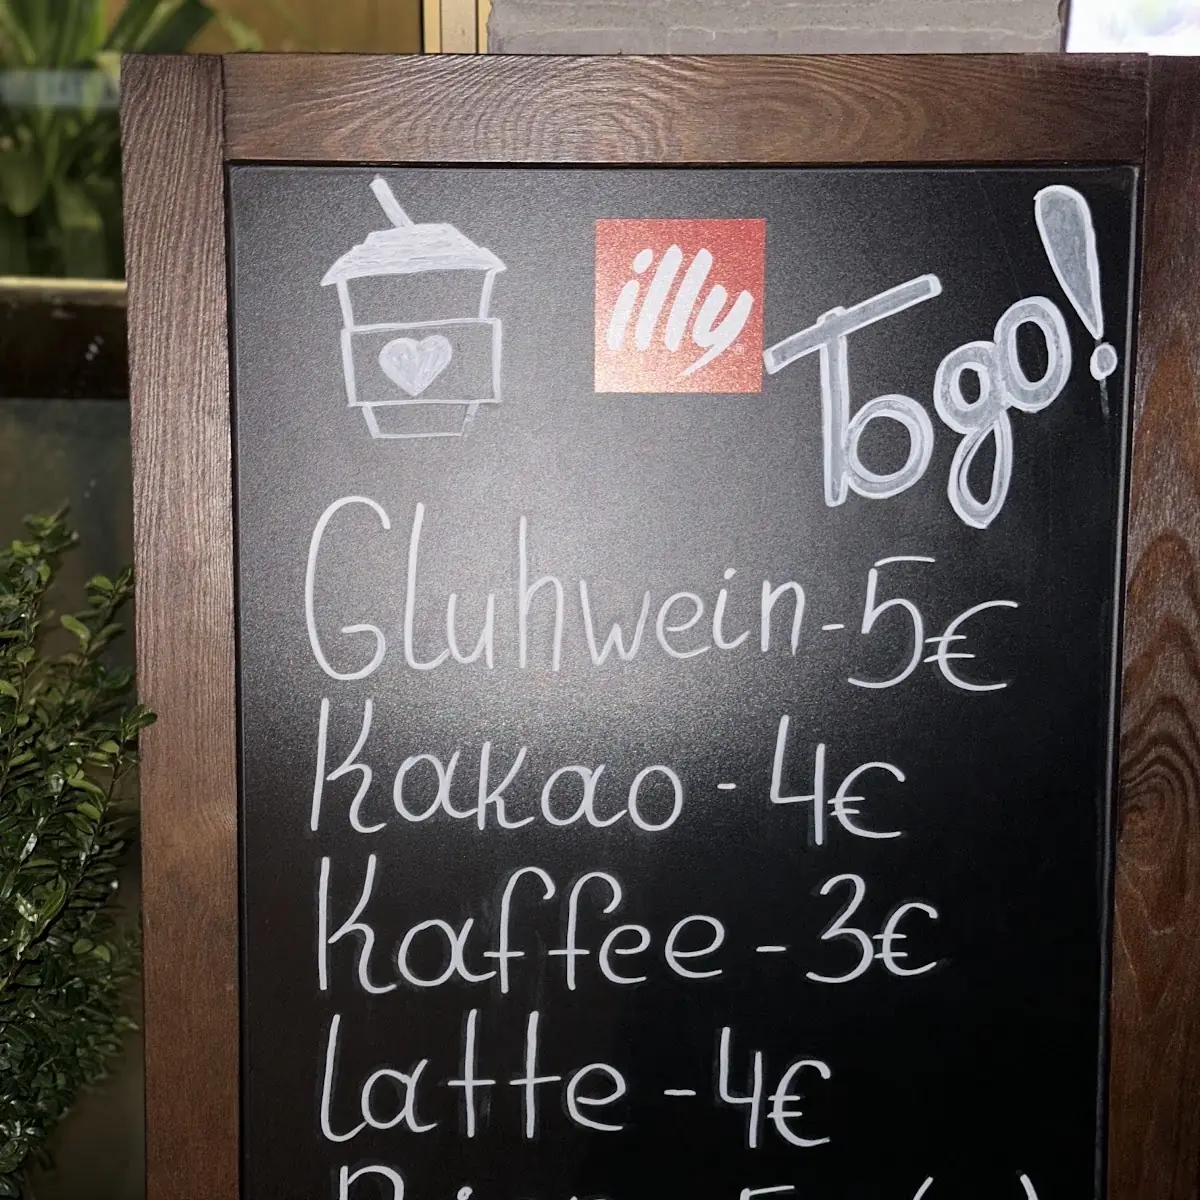 illy
To go!
Gluhwein - 5€
Kakao - 4€
Kaffee - 3€
Latte - 4€